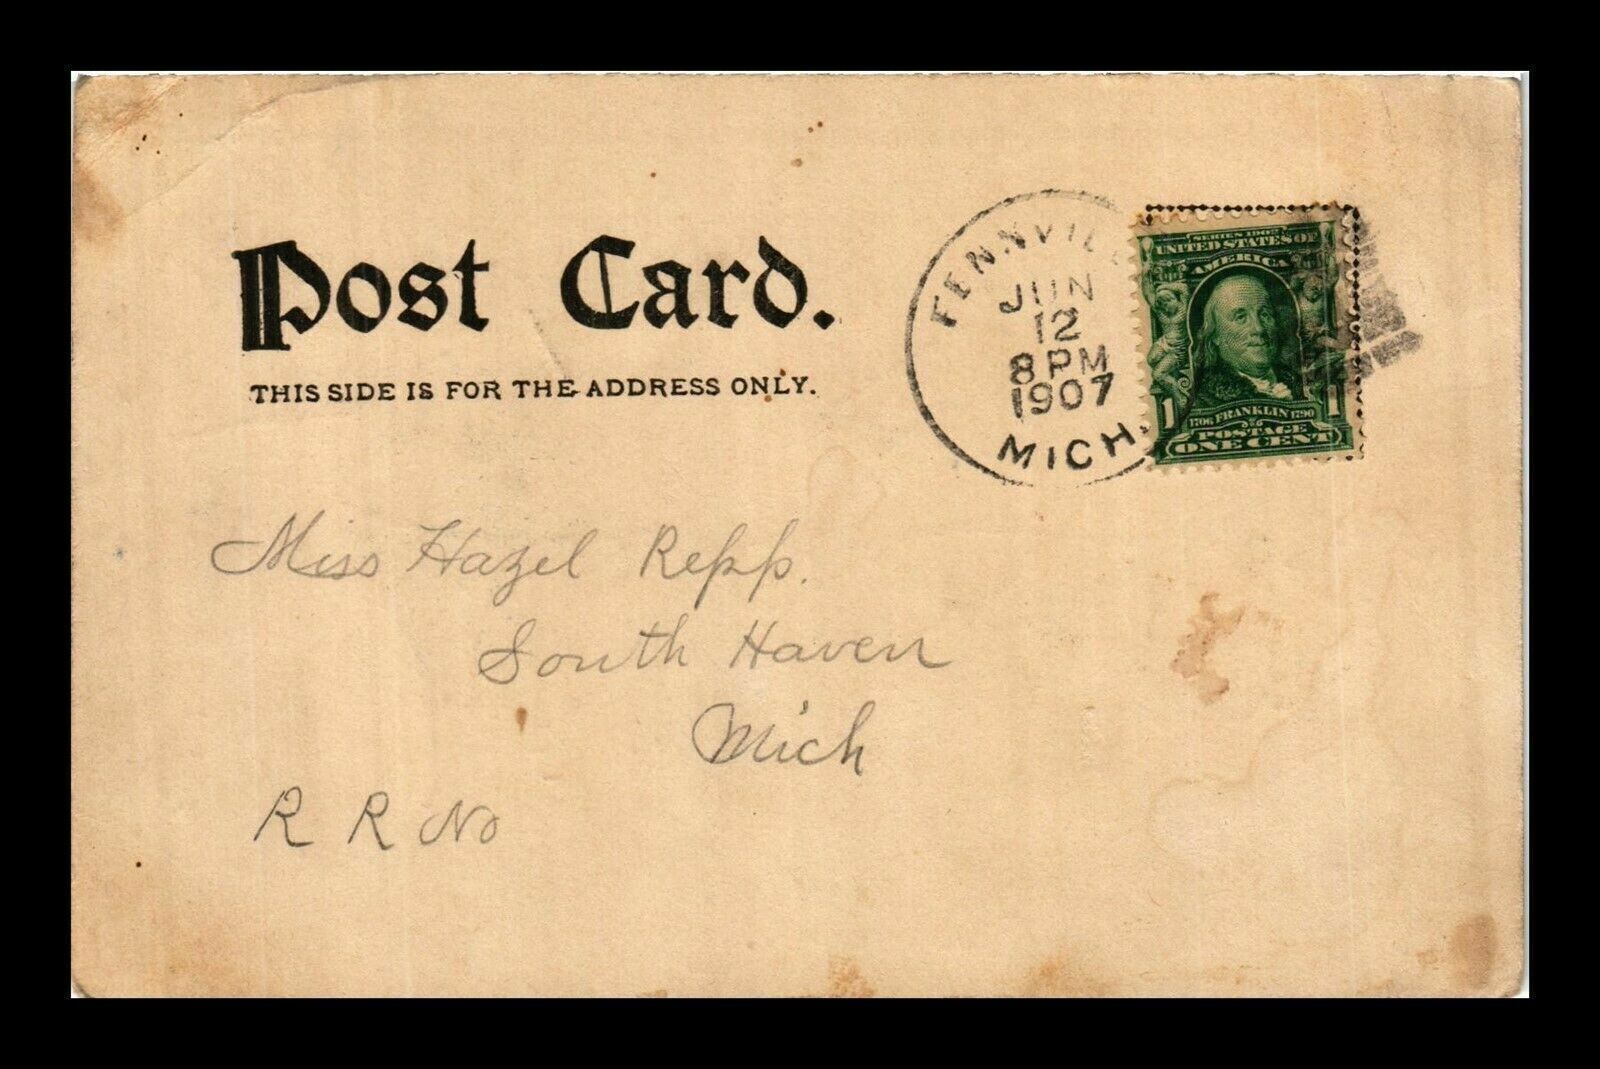 Post Card.
THIS SIDE IS FOR THE ADDRESS ONLY.
FENNVIL
JUN
12
8 PM
1907
MICH.
SERIES 1902
UNITED STATES OF
AMERICA
1 1
1706 FRANKLIN 1790
POSTAGE
ONE CENT
Miss Hazel Repp.
South Haven
Mich
R R No